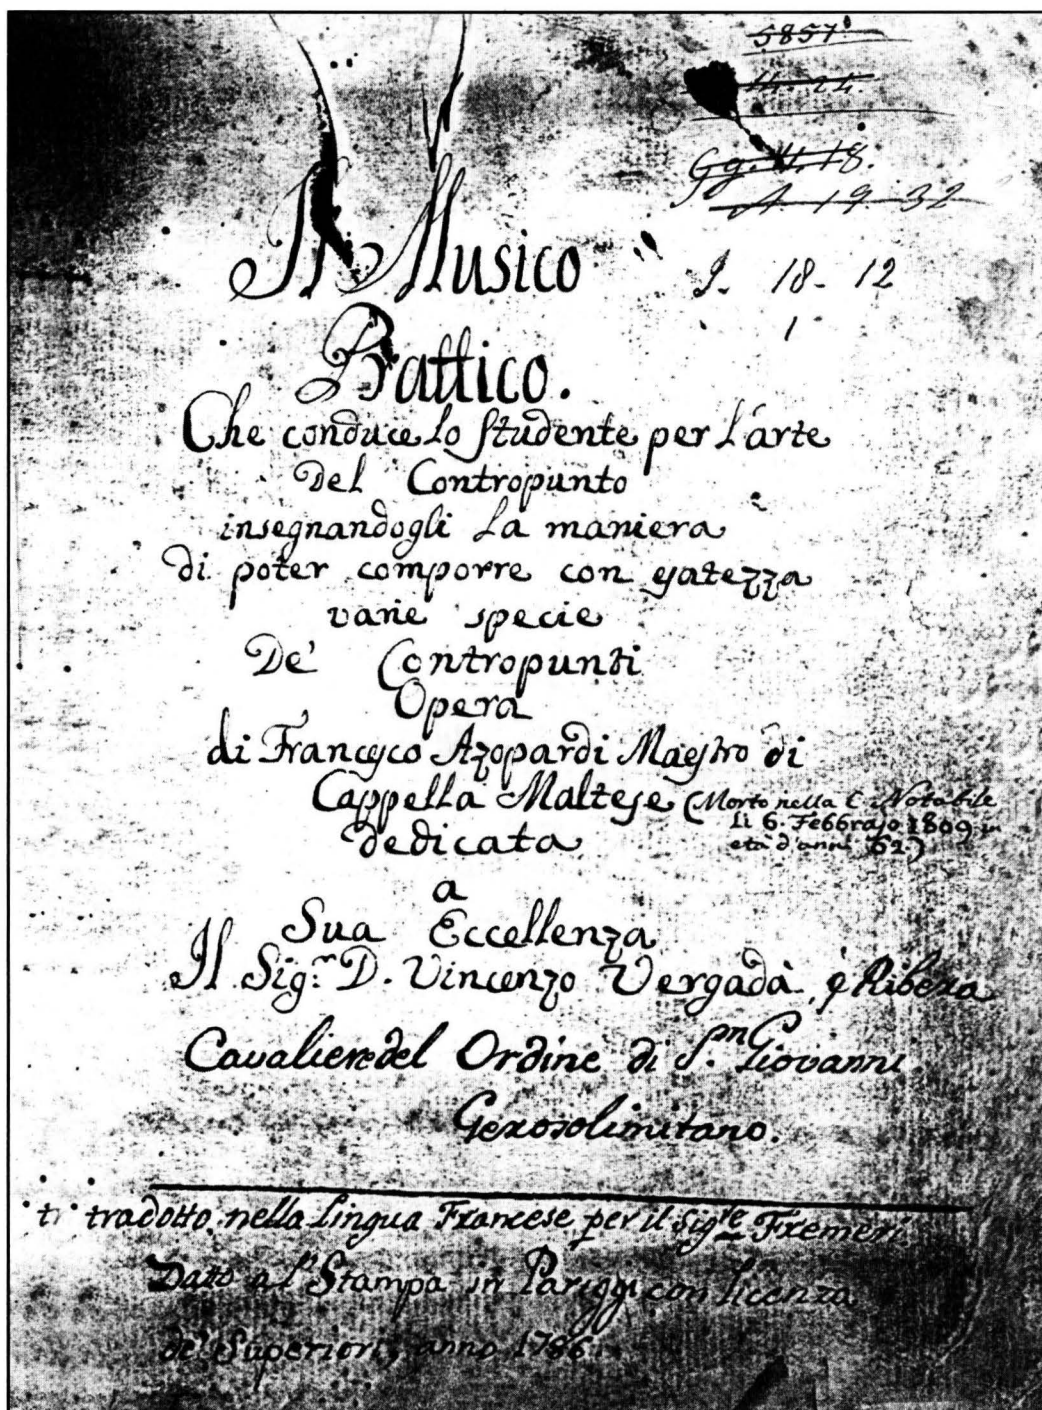 5857
11-24.
Gg. 11. 18.
A 19 32
Il Musico
J- 18- 12
1
Prattico.
Che conduce lo studente per l'arte
del Contropunto
insegnandogli la maniera
di poter comporre con esatezza
varie specie
De' Contropunti
Opera
di Francesco Azopardi Maestro di
Cappella Maltese (Morto nella C. Notabile
li 6. Febbrajo 1809 in
età d'anni 62.)
dedicata
a
Sua Eccellenza
Il Sig.r D. Vincenzo Vergadà, è Ribera
Cavaliere del Ordine di S.n Giovanni
Gerosolimitano.
tradotto nella lingua Francese per il Sig.re Fremeri
Dato al' Stampa in Pariggi con licenza
de' Superiori, anno 1786